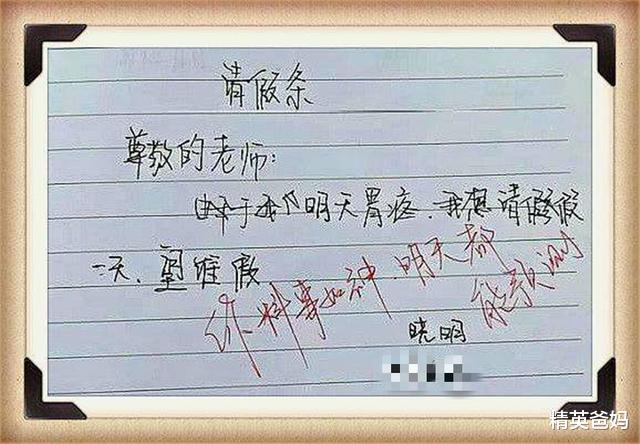 请假条
尊敬的老师:
由于我明天胃疼.我想请假
一天.望准假
你料事如神.明天都
能预测
晓明
精英爸妈